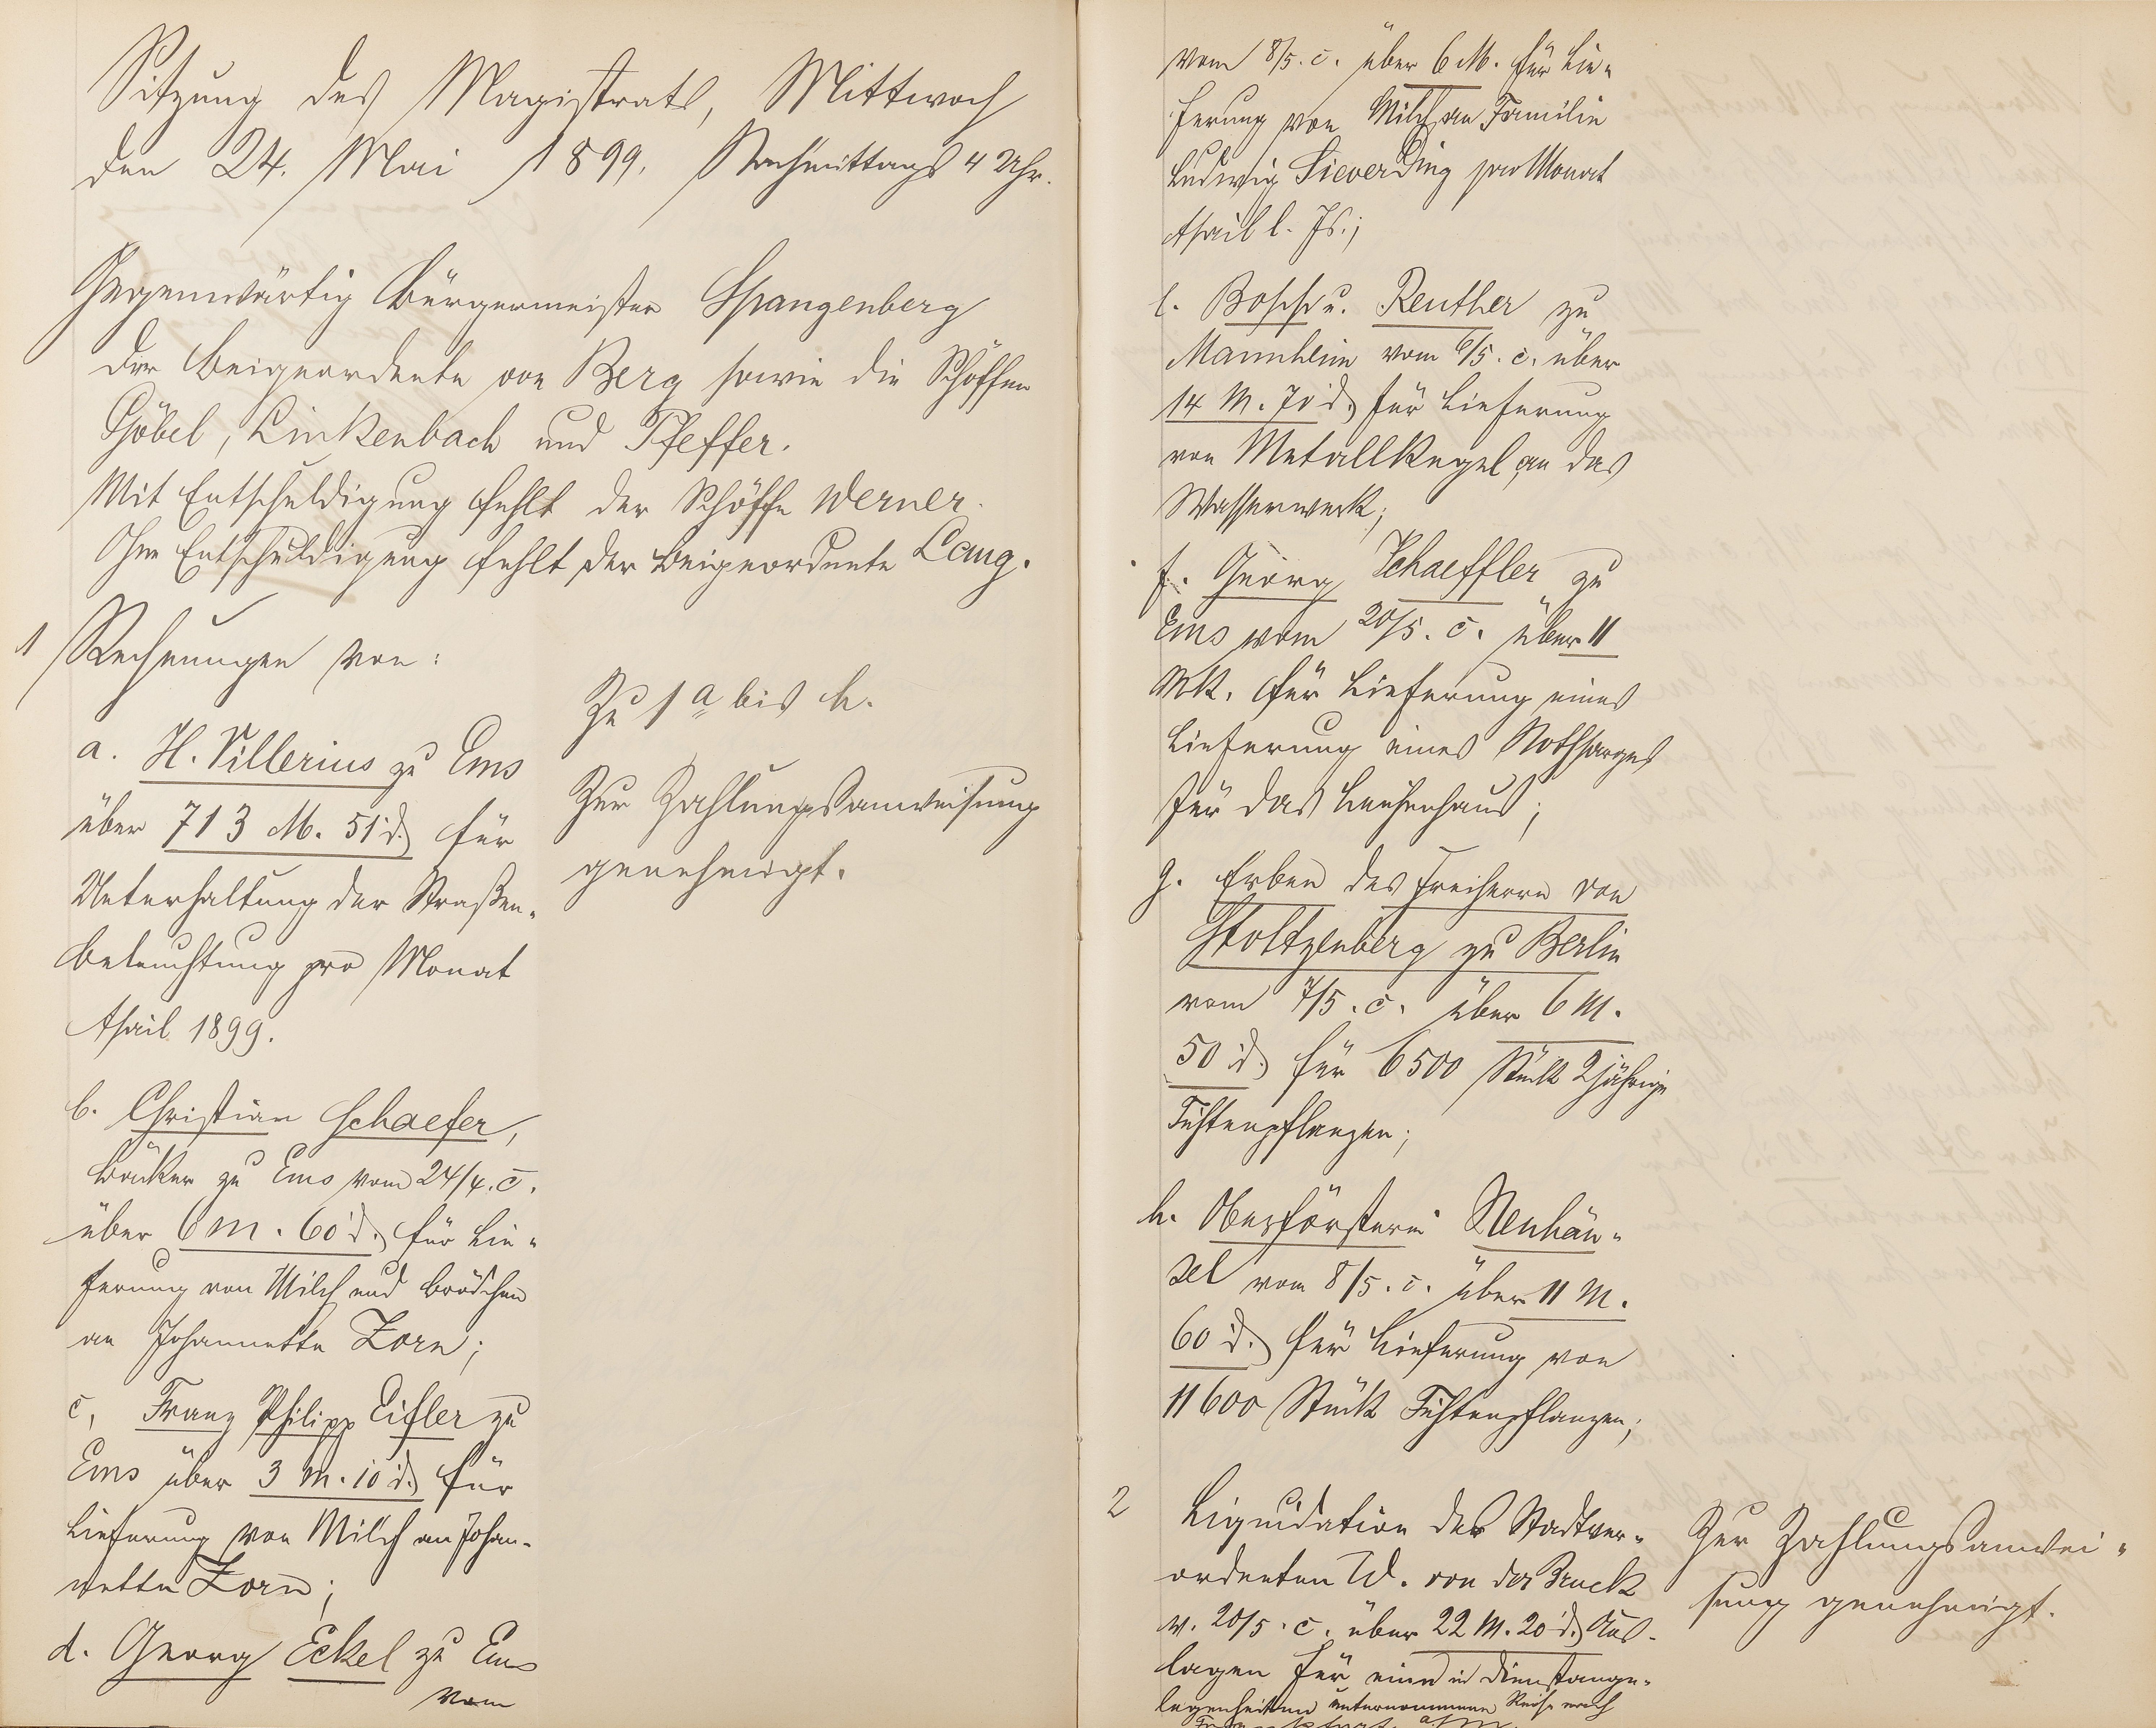 Sitzung des Magistrats, Mittwoch
den 24. Mai 1899. Nachmittags 4 Uhr.
Gegenwärtig Bürgermeister Spangenberg
der Beigeordnete von Berg sowie die Schöffen
Göbel, Linkenbach und Pfeffer.
Mit Entschuldigung fehlt der Schöffe Werner.
Ohne Entschuldigung fehlt der Beigeordnete Lang.
1 Rechnungen von:
a. H. Villerius zu Ems
über 713 M. 51 d. für
Unterhaltung der Straßen-
beleuchtung pro Monat
April 1899.
b. Christian Schaefer,
Bäcker zu Ems vom 24/4. c.
über 6 M. 60 d. für Lie-
ferung von Milch und Brödchen
an Johannette Zorn;
c, Franz Philipp Eisler zu
Ems über 3 M. 10 d. für
Lieferung von Milch an Johan-
nette Zorn;
d. Georg Eckel zu Ems
vom
Zu 1 a bis h.
Zur Zahlungsanweisung
genehmigt.
vom 8/5. c. über 6 M. für Lie-
ferung von Milch an Familie
Ludwig Sieverding pro Monat
April l. Js.;
e. Bopp u. Reuther zu
Mannheim vom 6/5. c. über
14 M. 70 d. für Lieferung
von Metallkegel an das
Wasserwerk;
f. Georg Schaeffler zu
Ems vom 20/5. c. über 11
Mk. für Lieferung eines
Lieferung eines Nothsarges
für das Leichenhaus;
g. Erben des Freiherrn von
Stoltzenberg zu Berlin
vom 7/5. c. über 6 M.
50 d. für 6500 Stück 2jährige
Fichtenpflanzen;
h. Oberförsterei Neuhäu-
sel vom 8/5. c. über 11 M.
60 d. für Lieferung von
11600 Stück Fichtenpflanzen;
2 Liquidation des Stadtver-
ordneten W. von der Bruck
v. 20/5. c. über 22 M. 20 d. Aus-
lagen für eine in Dienstange-
legenheiten unternommene Reise nach
Frankfurt a/M.
Zur Zahlungsanwei-
sung genehmigt.